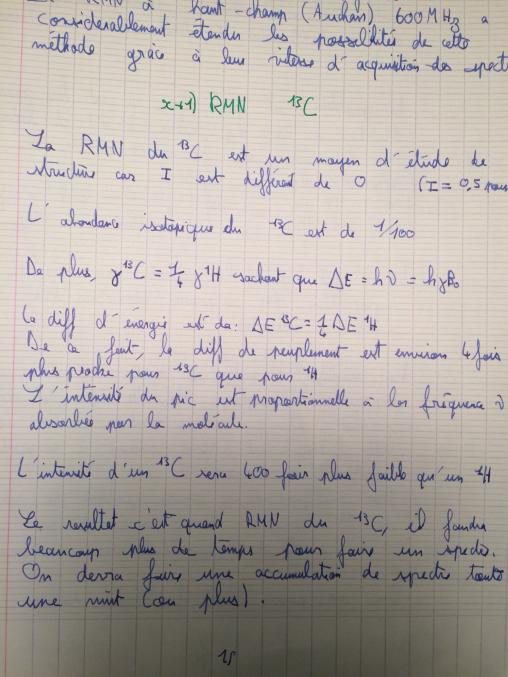 RMN à haut-champ (Auchan) 600 MHz a
considerablement étendu les possibilités de cette
méthode grâce à leur vitesse d'acquisition des spect
x+1) RMN ¹³C
La RMN du ¹³C est un moyen d'étude de
structure car I est différent de 0 (I = 0,5 pour
L'abondance isotopique du ¹³C est de 1/100
De plus, γ¹³C = 1/4 γ¹H sachant que ΔE = hν = hγB₀
La diff d'énergie est de : ΔE ¹³C = 1/4 ΔE ¹H
De ce fait, la diff de peuplement est environ 4 fois
plus proche pour ¹³C que pour ¹H
L'intensité du pic est proportionnelle à la fréquence ν
absorbée par la molécule.
L'intensité d'un ¹³C sera 400 fois plus faible qu'un ¹H
Le resultat c'est quand RMN du ¹³C, il faudra
beaucoup plus de temps pour faire un spectre.
On devra faire une accumulation de spectre toute
une nuit (ou plus).
15